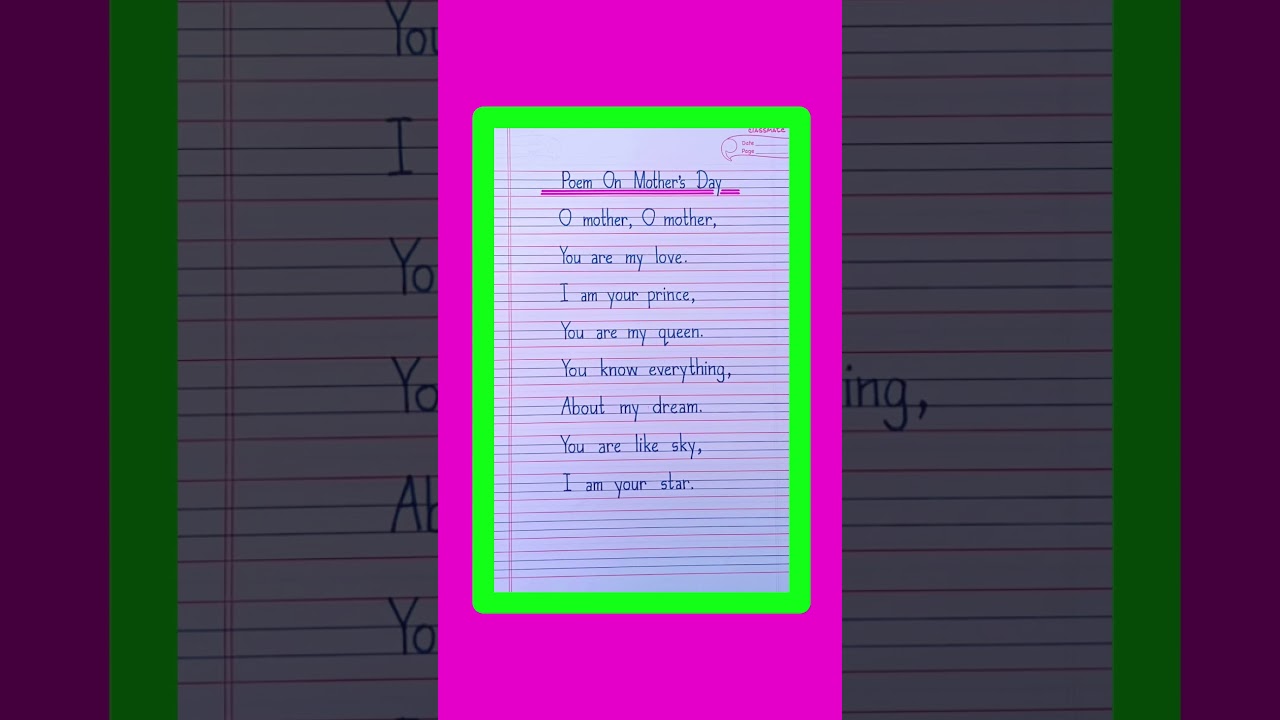 classmate
Date
Page
Poem On Mother's Day
O mother, O mother,
You are my love.
I am your prince,
You are my queen.
You know everything,
About my dream.
You are like sky,
I am your star.